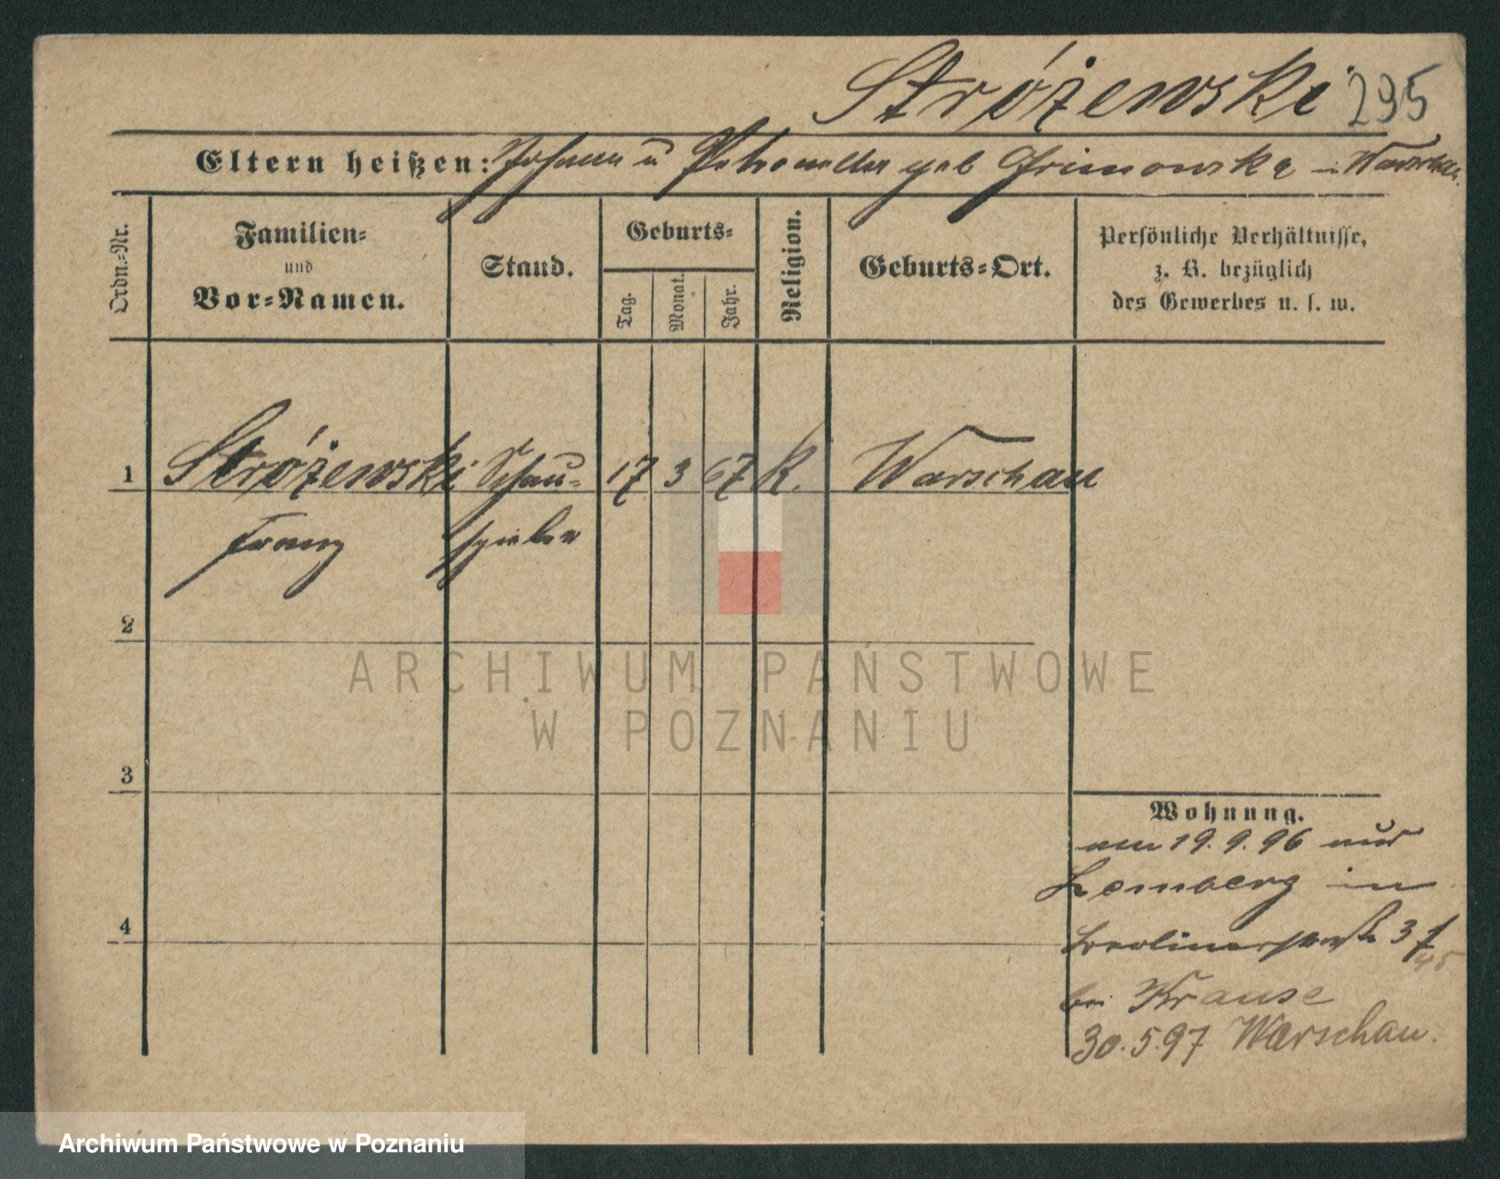 Stróżewski 295
Eltern heißen: Johann u Petronella geb Grimowska in Warschau.
Ordn.-Nr.
Familien-
und
Vor-Namen.
Stand.
Geburts-
Tag.
Monat.
Jahr.
Religion.
Geburts-Ort.
Persönliche Verhältnisse,
z. B. bezüglich
des Gewerbes u. s. w.
1 Stróżewski Schau- 17 3 67 K. Warschau
Franz spieler
2
3
4
Wohnung.
am 19.9.96 aus
Lemberg in
Berlinerstraße 3
bei Krause
30.5.97 Warschau.
ARCHIWUM PAŃSTWOWE
W POZNANIU
Archiwum Państwowe w Poznaniu